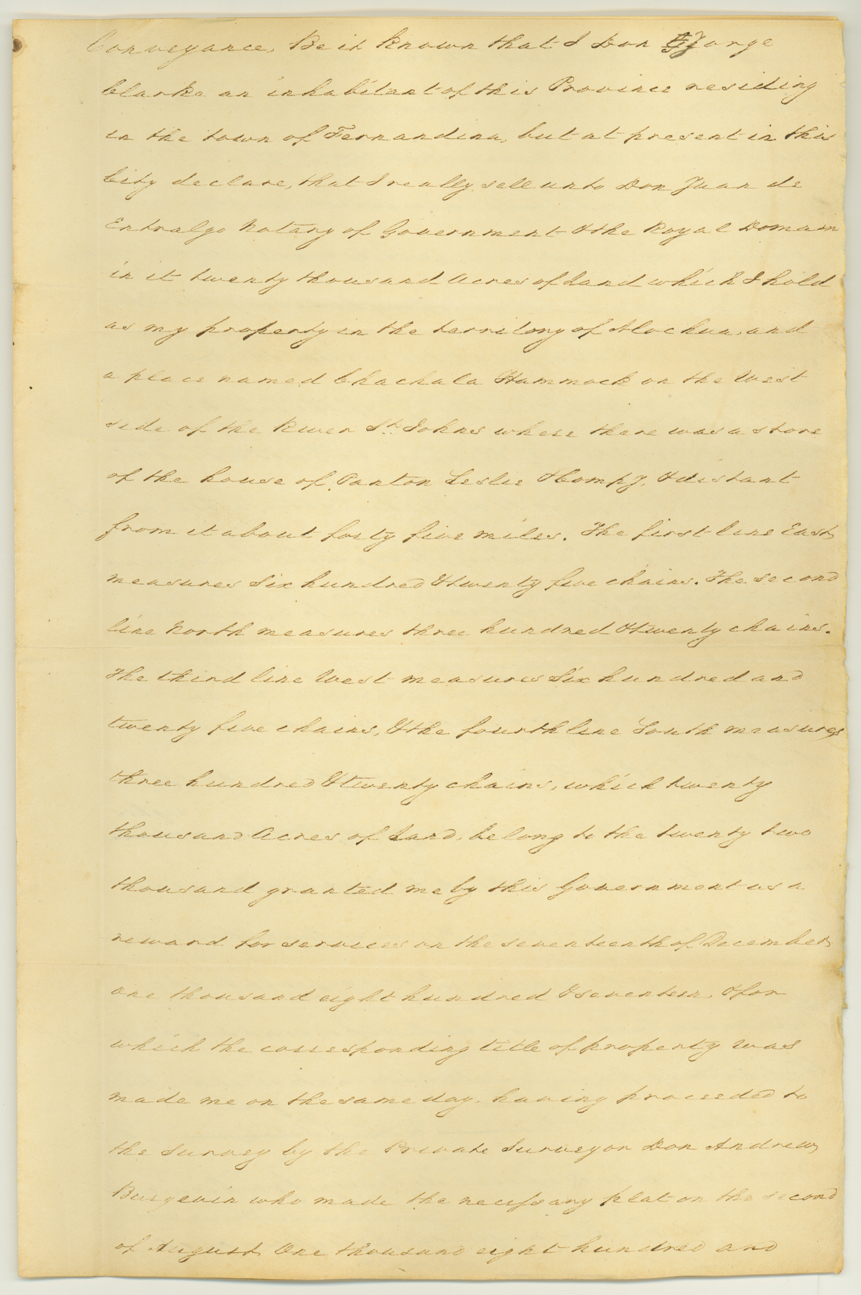 Conveyance, Be it known that I Don Jorge
Clarke an inhabitant of this Province residing
in the town of Fernandina, but at present in this
City declare, that I really sell unto Don Juan de
Entralgo Notary of Government & the Royal Domain
in it twenty thousand Acres of Land which I hold
as my property in the territory of Alachua, and
a place named Chachala Hammock on the West
side of the River St. Johns where there was a store
of the house of Panton Leslie & Compy. & distant
from it about forty five miles. The first line East
measures Six hundred & twenty five chains. The second
line North measures three hundred & twenty chains.
The third line West measures Six hundred and
twenty five chains, & the fourth line South measures
three hundred & twenty chains, which twenty
thousand Acres of Land, belong to the twenty two
thousand granted me by this Government as a
reward for services on the seventeenth of December
one thousand eight hundred & seventeen, & for
which the corresponding title of property was
made me on the same day. having proceeded to
the Survey by the Private Surveyor Don Andrew
Burgevin who made the necessary plat on the second
of August One thousand eight hundred and